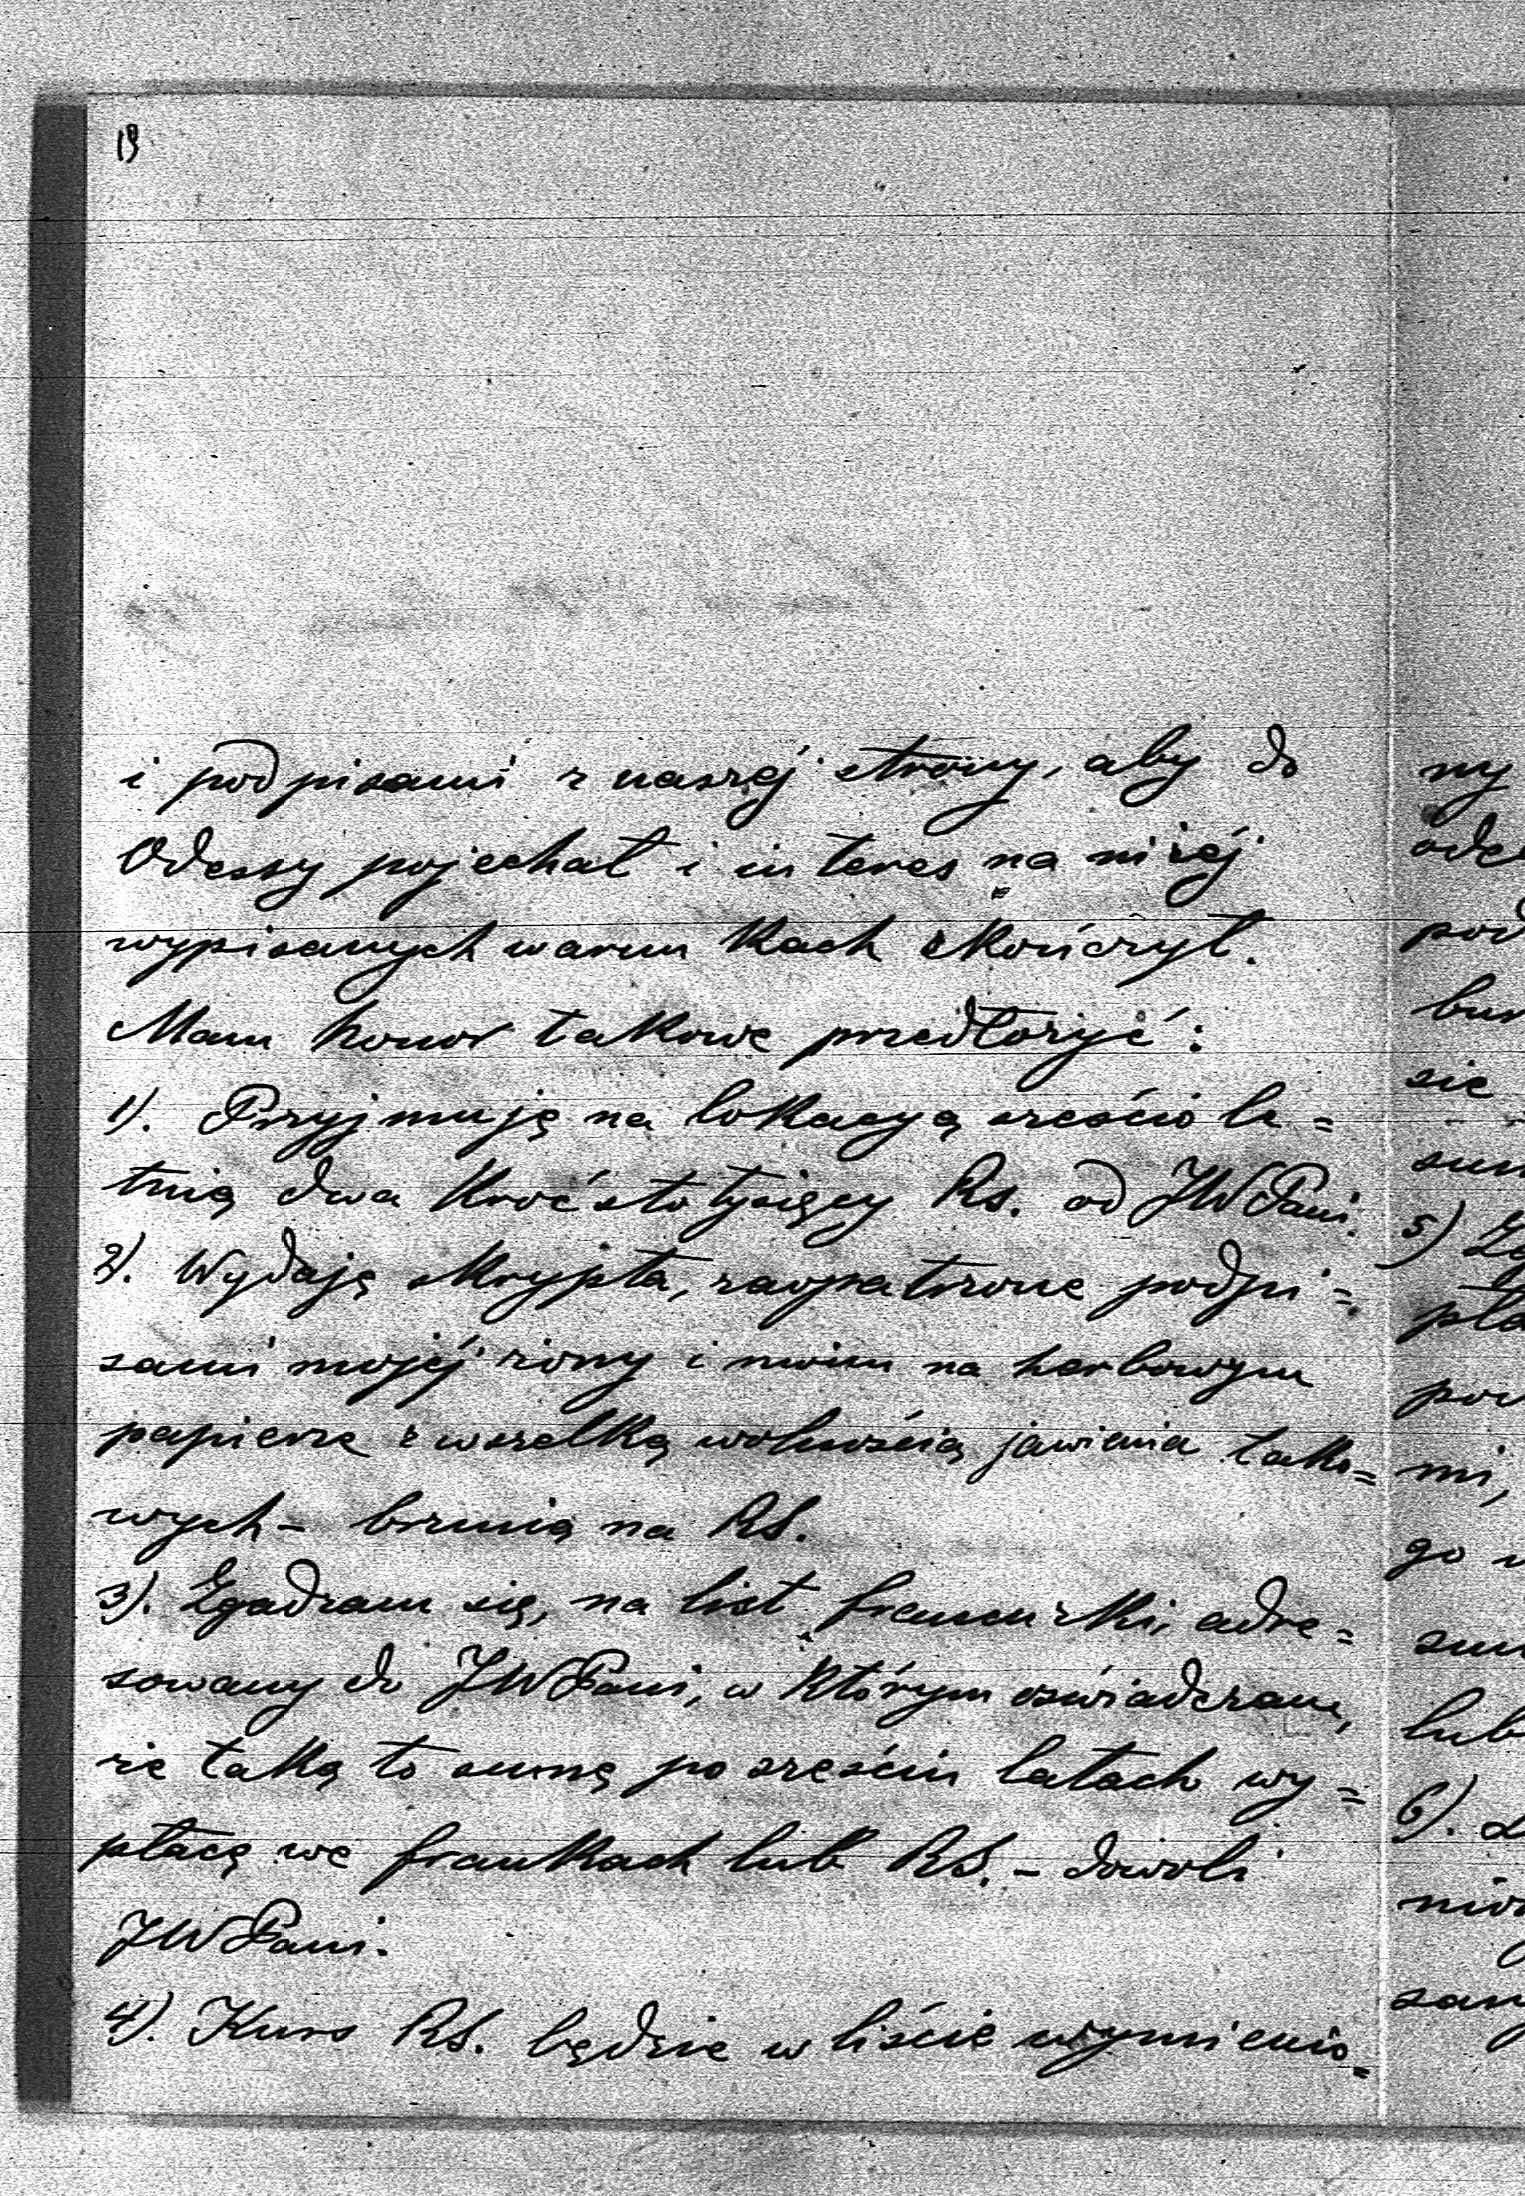 19
i podpisami z naszéj strony, aby do
Odessy pojechał i interes na niżéj
wypisanych warunkach skończył.
Mam honor takowe przedłożyć:
1). Przyjmuję na lokacyą sześciole=
tnią dwakroć sto tysięcy Rs. od JWPani.
2). Wydaję skrypta, zaopatrzone podpi=
sami mojéj żony i moim na herbowym
papierze z wszelką wolnością jawienia tako=
wych – brzmią na RS.
3). Zgadzam się, na list francuzki, adre=
sowany do JWPani, w którym oświadczam,
że taką to sumę po sześciu latach wy=
płacę we frankach lub RS. – dowoli
JWPani.
4). Kurs RS. będzie w liście wymienio=
ny
pod
się
5)
mi,
go
lub
6).